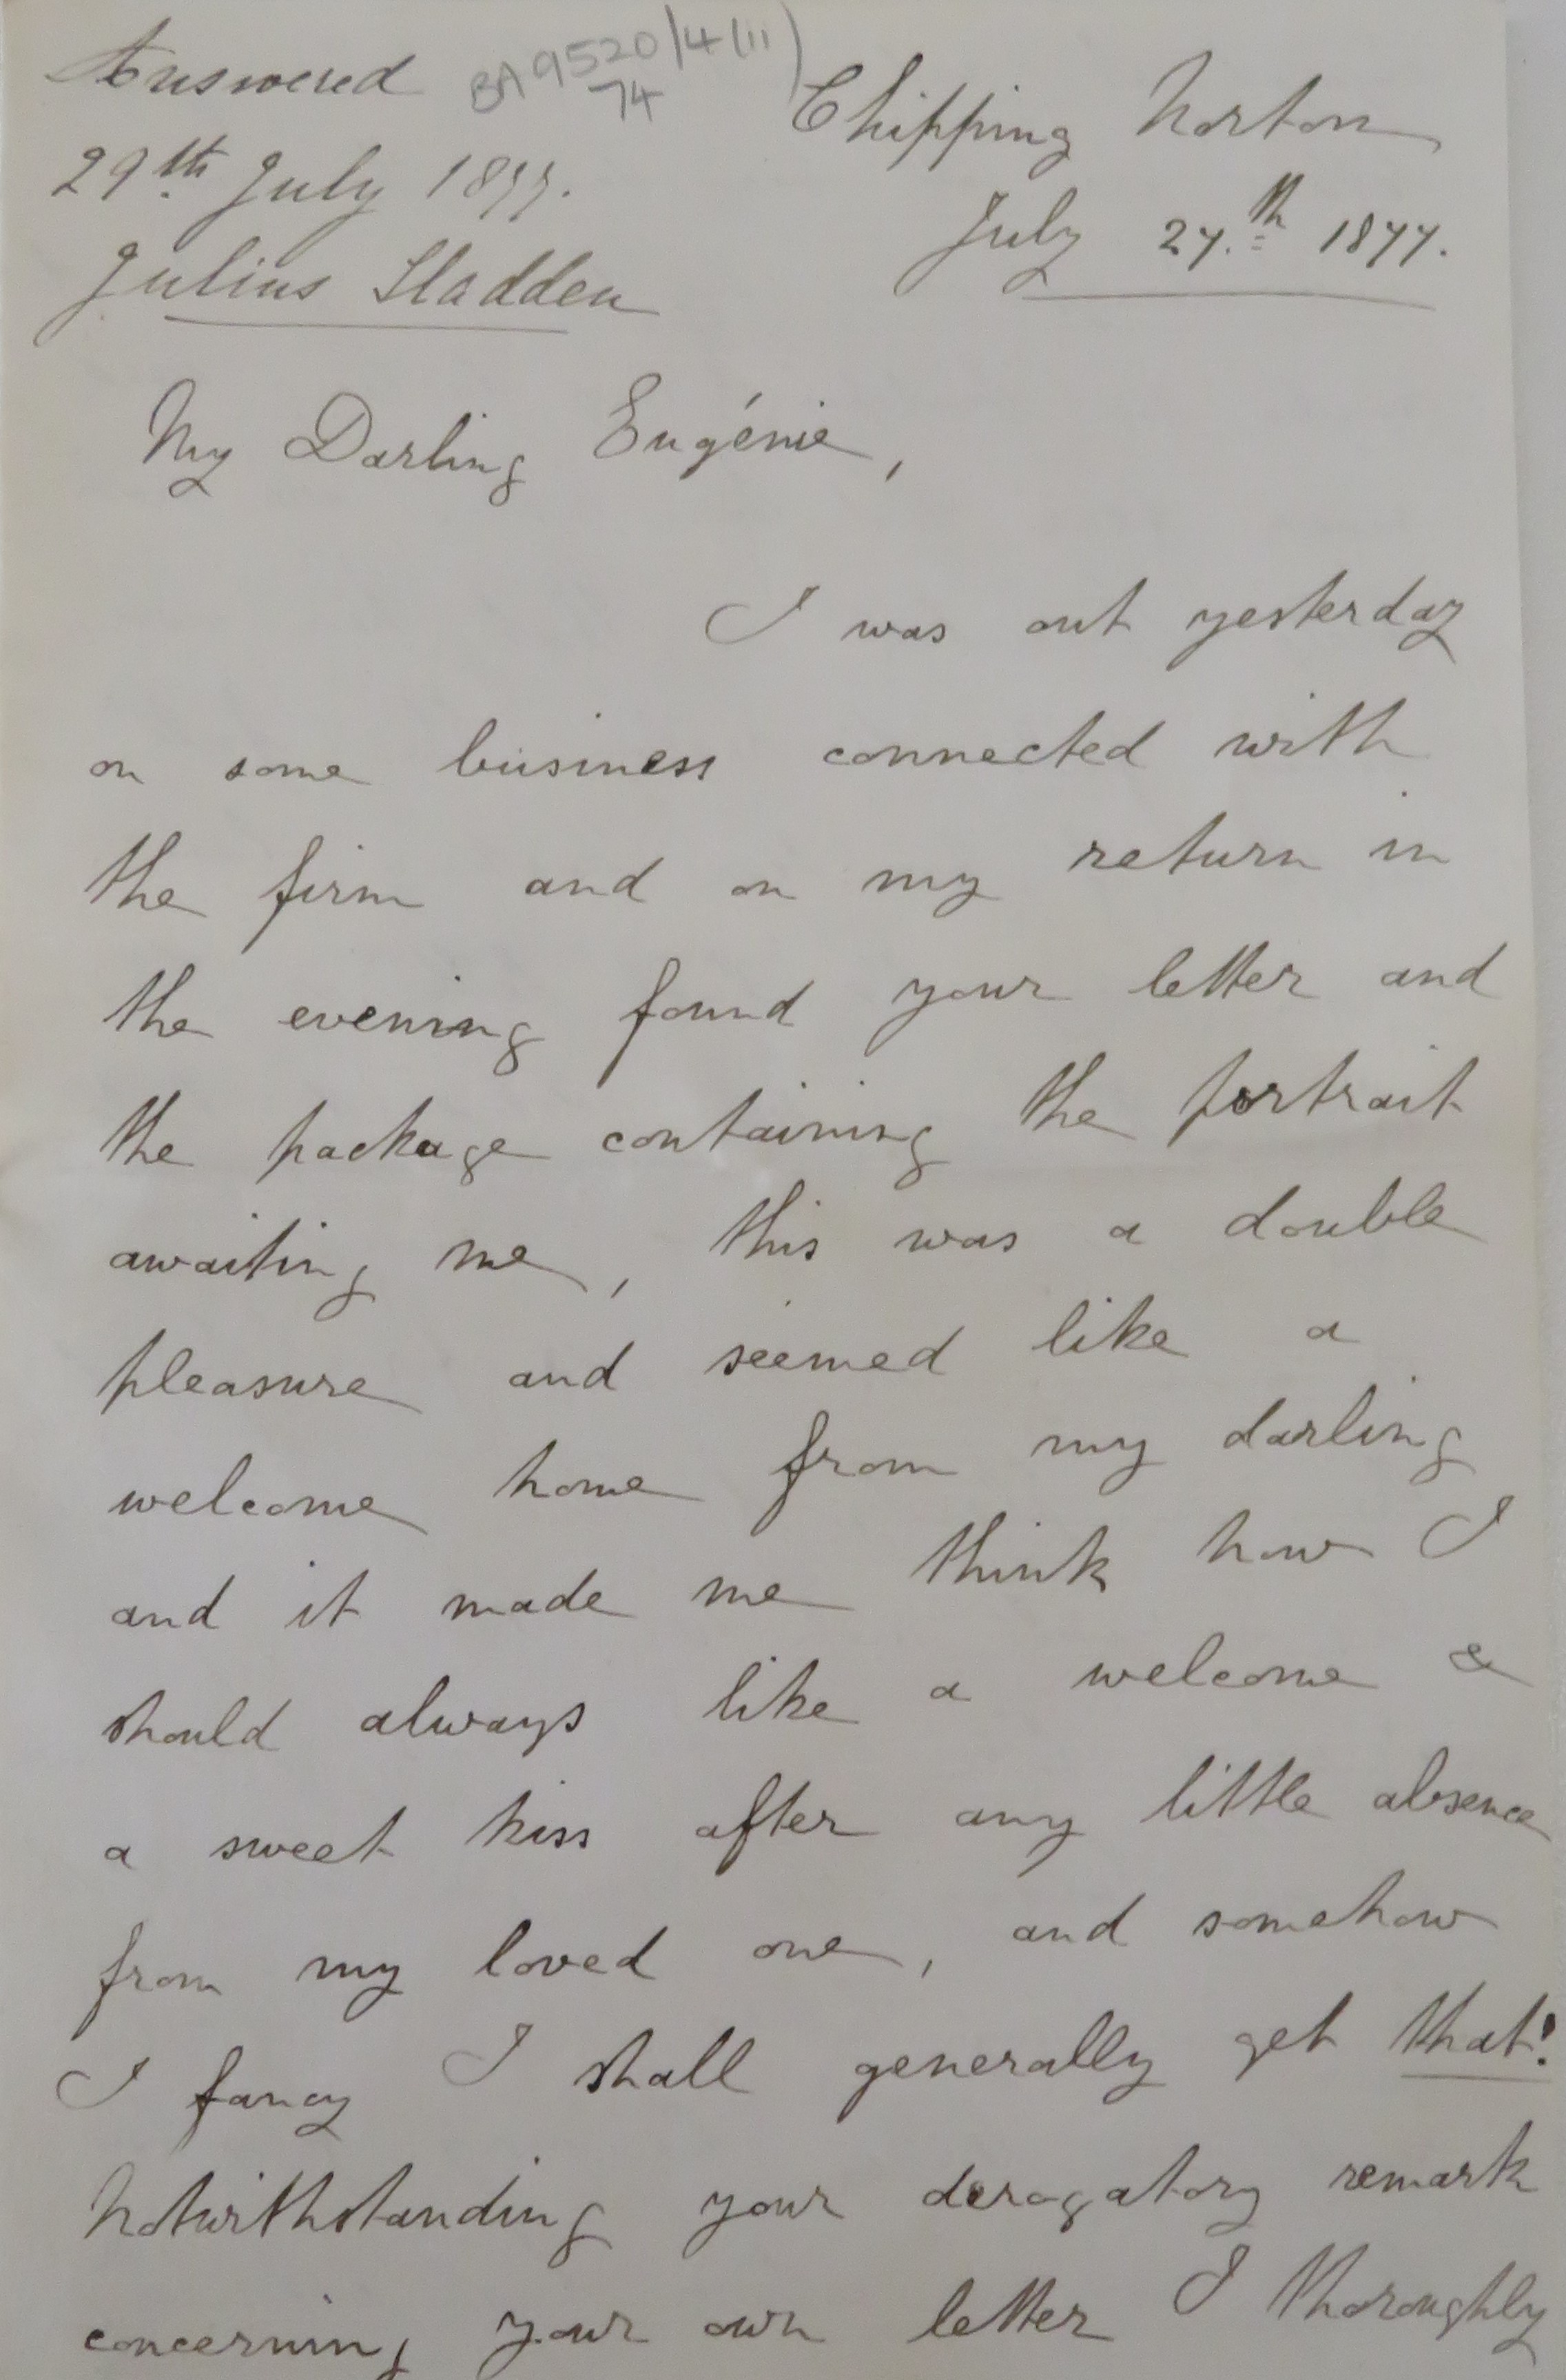 Answered
29th July 1877.
Julius Sladden
BA 9520/4(ii)
74
Chipping Norton
July 27.th 1877.
My Darling Eugénie,
I was out yesterday
on some business connected with
the firm and on my return in
the evening found your letter and
the package containing the portrait
awaiting me, this was a double
pleasure and seemed like a
welcome home from my darling
and it made me think how I
should always like a welcome &
a sweet kiss after any little absence
from my loved one, and somehow
I fancy I shall generally get that!
Notwithstanding your derogatory remark
concerning your own letter I thoroughly